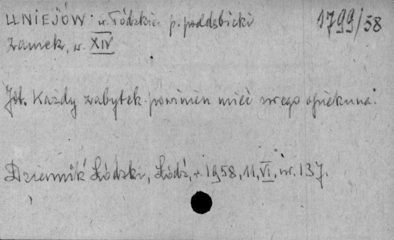 UNIEJÓW w. Łódzkie p. poddębicki
1799/58
zamek, w. XIV
Jst. Każdy zabytek powinien mieć swego opiekuna.
Dziennik Łódzki, Łódź, r. 1958, 11, VI, nr. 137.